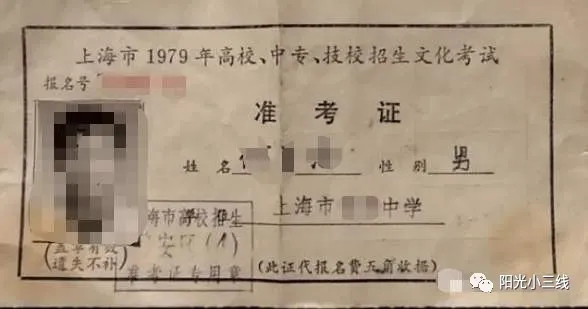 上海市1979年高校、中专、技校招生文化考试
报名号
准考证
姓名 性别 男
上海市 中学
海市高校招生
安 (1)
准考证专用章
(盖章有效
遗失不补)
(此证代报名费五角收据)
阳光小三线